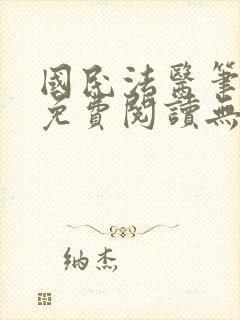 國民法醫筆
免費閱讀無
納杰